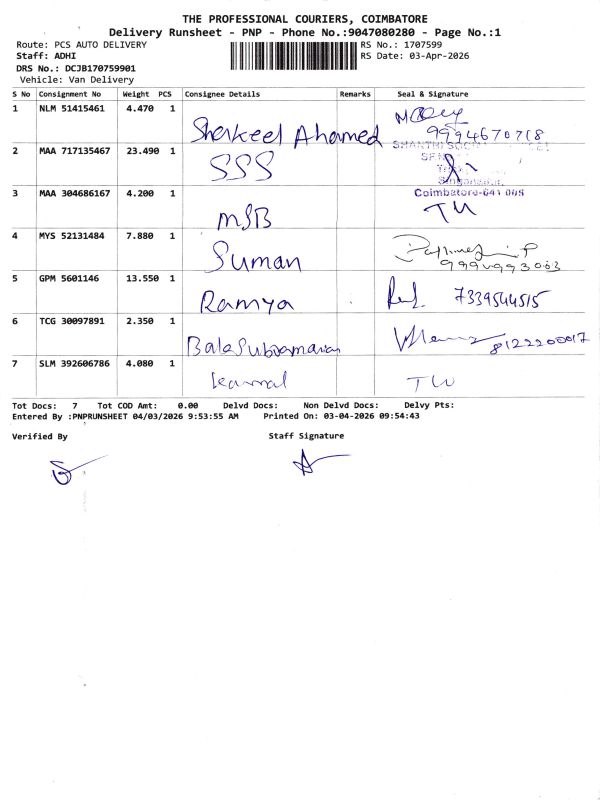 THE PROFESSIONAL COURIERS, COIMBATORE
Delivery Runsheet - PNP - Phone No.:9047080280 - Page No.:1
Route: PCS AUTO DELIVERY
RS No.: 1707599
Staff: ADHI
RS Date: 03-Apr-2026
DRS No.: DCJB170759901
Vehicle: Van Delivery
S No Consignment No Weight PCS Consignee Details Remarks Seal & Signature
1 NLM 51415461 4.470 1 Shakeel Ahamed 9994670718
2 MAA 717135467 23.490 1 SSS
Coimbatore-641 005
3 MAA 304686167 4.200 1 MSB TW
4 MYS 52131484 7.880 1 Suman
5 GPM 5601146 13.550 1 Ramya 7339544515
6 TCG 30097891 2.350 1 BalaSubramanian 8122200017
7 SLM 392606786 4.080 1 kamal TW
Tot Docs: 7 Tot COD Amt: 0.00 Delvd Docs: Non Delvd Docs: Delvy Pts:
Entered By :PNPRUNSHEET 04/03/2026 9:53:55 AM Printed On: 03-04-2026 09:54:43
Verified By Staff Signature